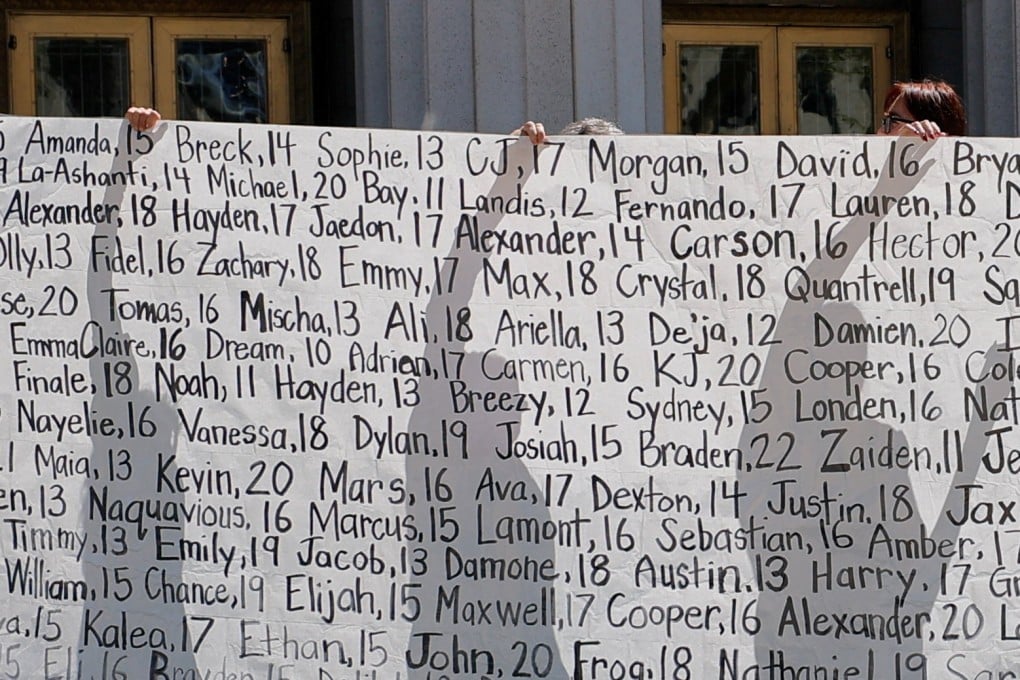 Amanda, 15 Breck, 14 Sophie, 13 CJ, 17 Morgan, 15 David, 16
La-Ashanti, 14 Michael, 20 Bay, 11 Landis, 12 Fernando, 17 Lauren, 18
Alexander, 18 Hayden, 17 Jaedon, 17 Alexander, 14 Carson, 16 Hector, 20
olly, 13 Fidel, 16 Zachary, 18 Emmy, 17 Max, 18 Crystal, 18 Quantrell, 19 Sa
se, 20 Tomas, 16 Mischa, 13 Ali, 18 Ariella, 13 De'ja, 12 Damien, 20
EmmaClaire, 16 Dream, 10 Adrian, 17 Carmen, 16 KJ, 20 Cooper, 16 Col
Finale, 18 Noah, 11 Hayden, 13 Breezy, 12 Sydney, 15 Londen, 16 Nat
Nayelie, 16 Vanessa, 18 Dylan, 19 Josiah, 15 Braden, 22 Zaiden, 11 Je
Maia, 13 Kevin, 20 Mars, 16 Ava, 17 Dexton, 14 Justin, 18 Jax
en, 13 Naquavious, 16 Marcus, 15 Lamont, 16 Sebastian, 16 Amber, 17
Timmy, 13 Emily, 19 Jacob, 13 Damone, 18 Austin, 13 Harry, 17 Gr
William, 15 Chance, 19 Elijah, 15 Maxwell, 17 Cooper, 16 Alexander, 20
a, 15 Kalea, 17 Ethan, 15 John, 20 Frog, 18 Nathaniel, 19
Eli, 16